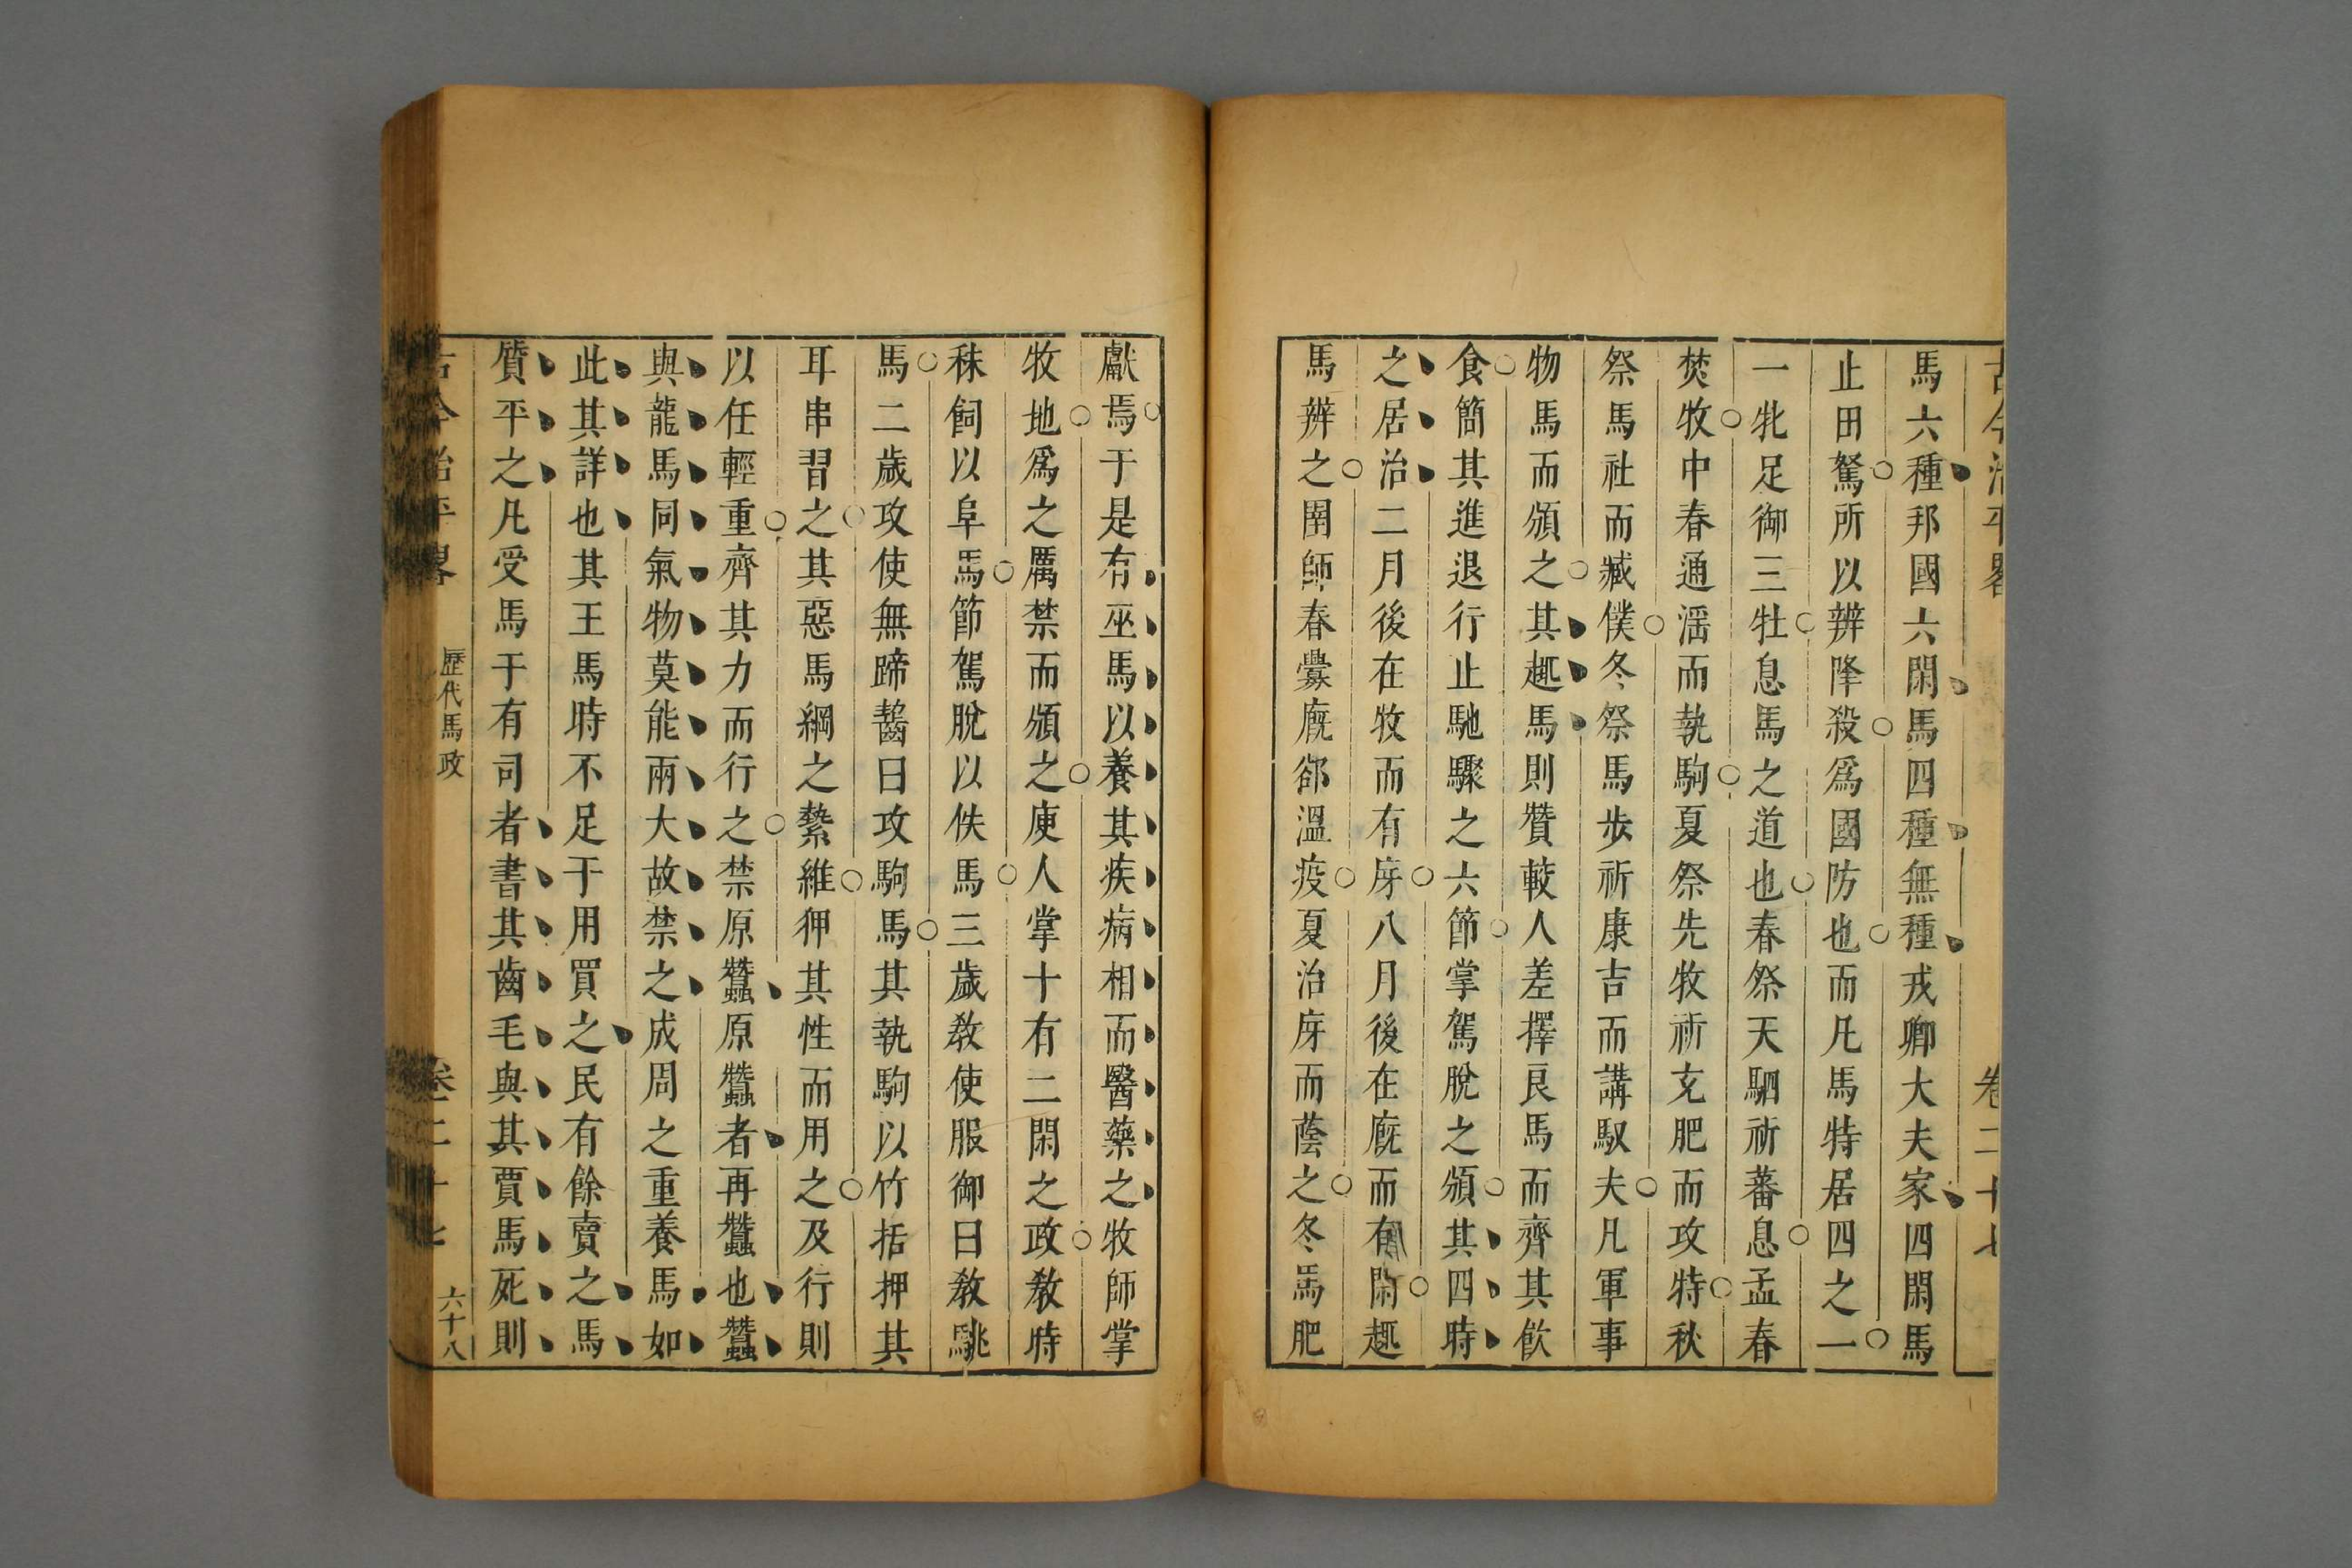 古今治平畧 卷二十七
馬六種邦國六閑馬四種無種戎卿大夫家四閑馬
止田駑所以辨降殺爲國防也而凡馬特居四之一
一牝足御三牡息馬之道也春祭天駟祈蕃息孟春
焚牧中春通滛而執駒夏祭先牧祈充肥而攻特秋
祭馬社而臧僕冬祭馬步祈康吉而講馭夫凡軍事
物馬而頒之其趣馬則贊較人差擇良馬而齊其飲
食簡其進退行止馳驟之六節掌駕脫之頒其四時
之居治二月後在牧而有庌八月後在廐而有閑趣
馬辨之圉師春釁廐郤溫疫夏治庌而蔭之冬馬肥
獻焉于是有巫馬以養其疾病相而醫藥之牧師掌
牧地爲之厲禁而頒之庾人掌十有二閑之政敎時
秣飼以阜馬節駕脫以佚馬三歲敎使服御曰敎駣
馬二歲攻使無蹄齧曰攻駒馬其執駒以竹括押其
耳串習之其惡馬綱之縶維狎其性而用之及行則
以任輕重齊其力而行之禁原蠶原蠶者再蠶也蠶
與龍馬同氣物莫能兩大故禁之成周之重養馬如
此其詳也其王馬時不足于用買之民有餘賣之馬
質平之凡受馬于有司者書其齒毛與其賈馬死則
古今治平畧 歷代馬政 卷二十七 六十八